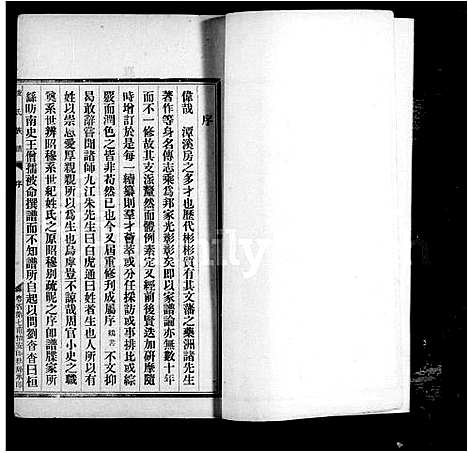 序
偉哉　潭溪房之多才也歷代彬彬質有其文藩之藥洲諸先生
著作等身名傳志乘為邦家光彰彰矣即以家譜論亦無數十年
而不一修故其支派釐然而體例素定又經前後賢迭加研摩隨
時增訂於是每一續纂則羣才薈萃或分任採訪或事排比或綜
覈而潤色之皆非苟然已也今又屆重修刋成屬序 不文抑
曷敢辭嘗聞諸師九江朱先生曰白虎通曰姓者生也人所以有
姓以崇恩愛厚親親所以為生也烏虖豈不諒哉周官小史之職
奠系世辨昭穆系世紀姓氏之原昭穆別疏昵之序卽譜牒家所
繇昉南史王僧孺被命撰譜而不知譜所自起以問劉杳杳曰桓
氏族譜　序